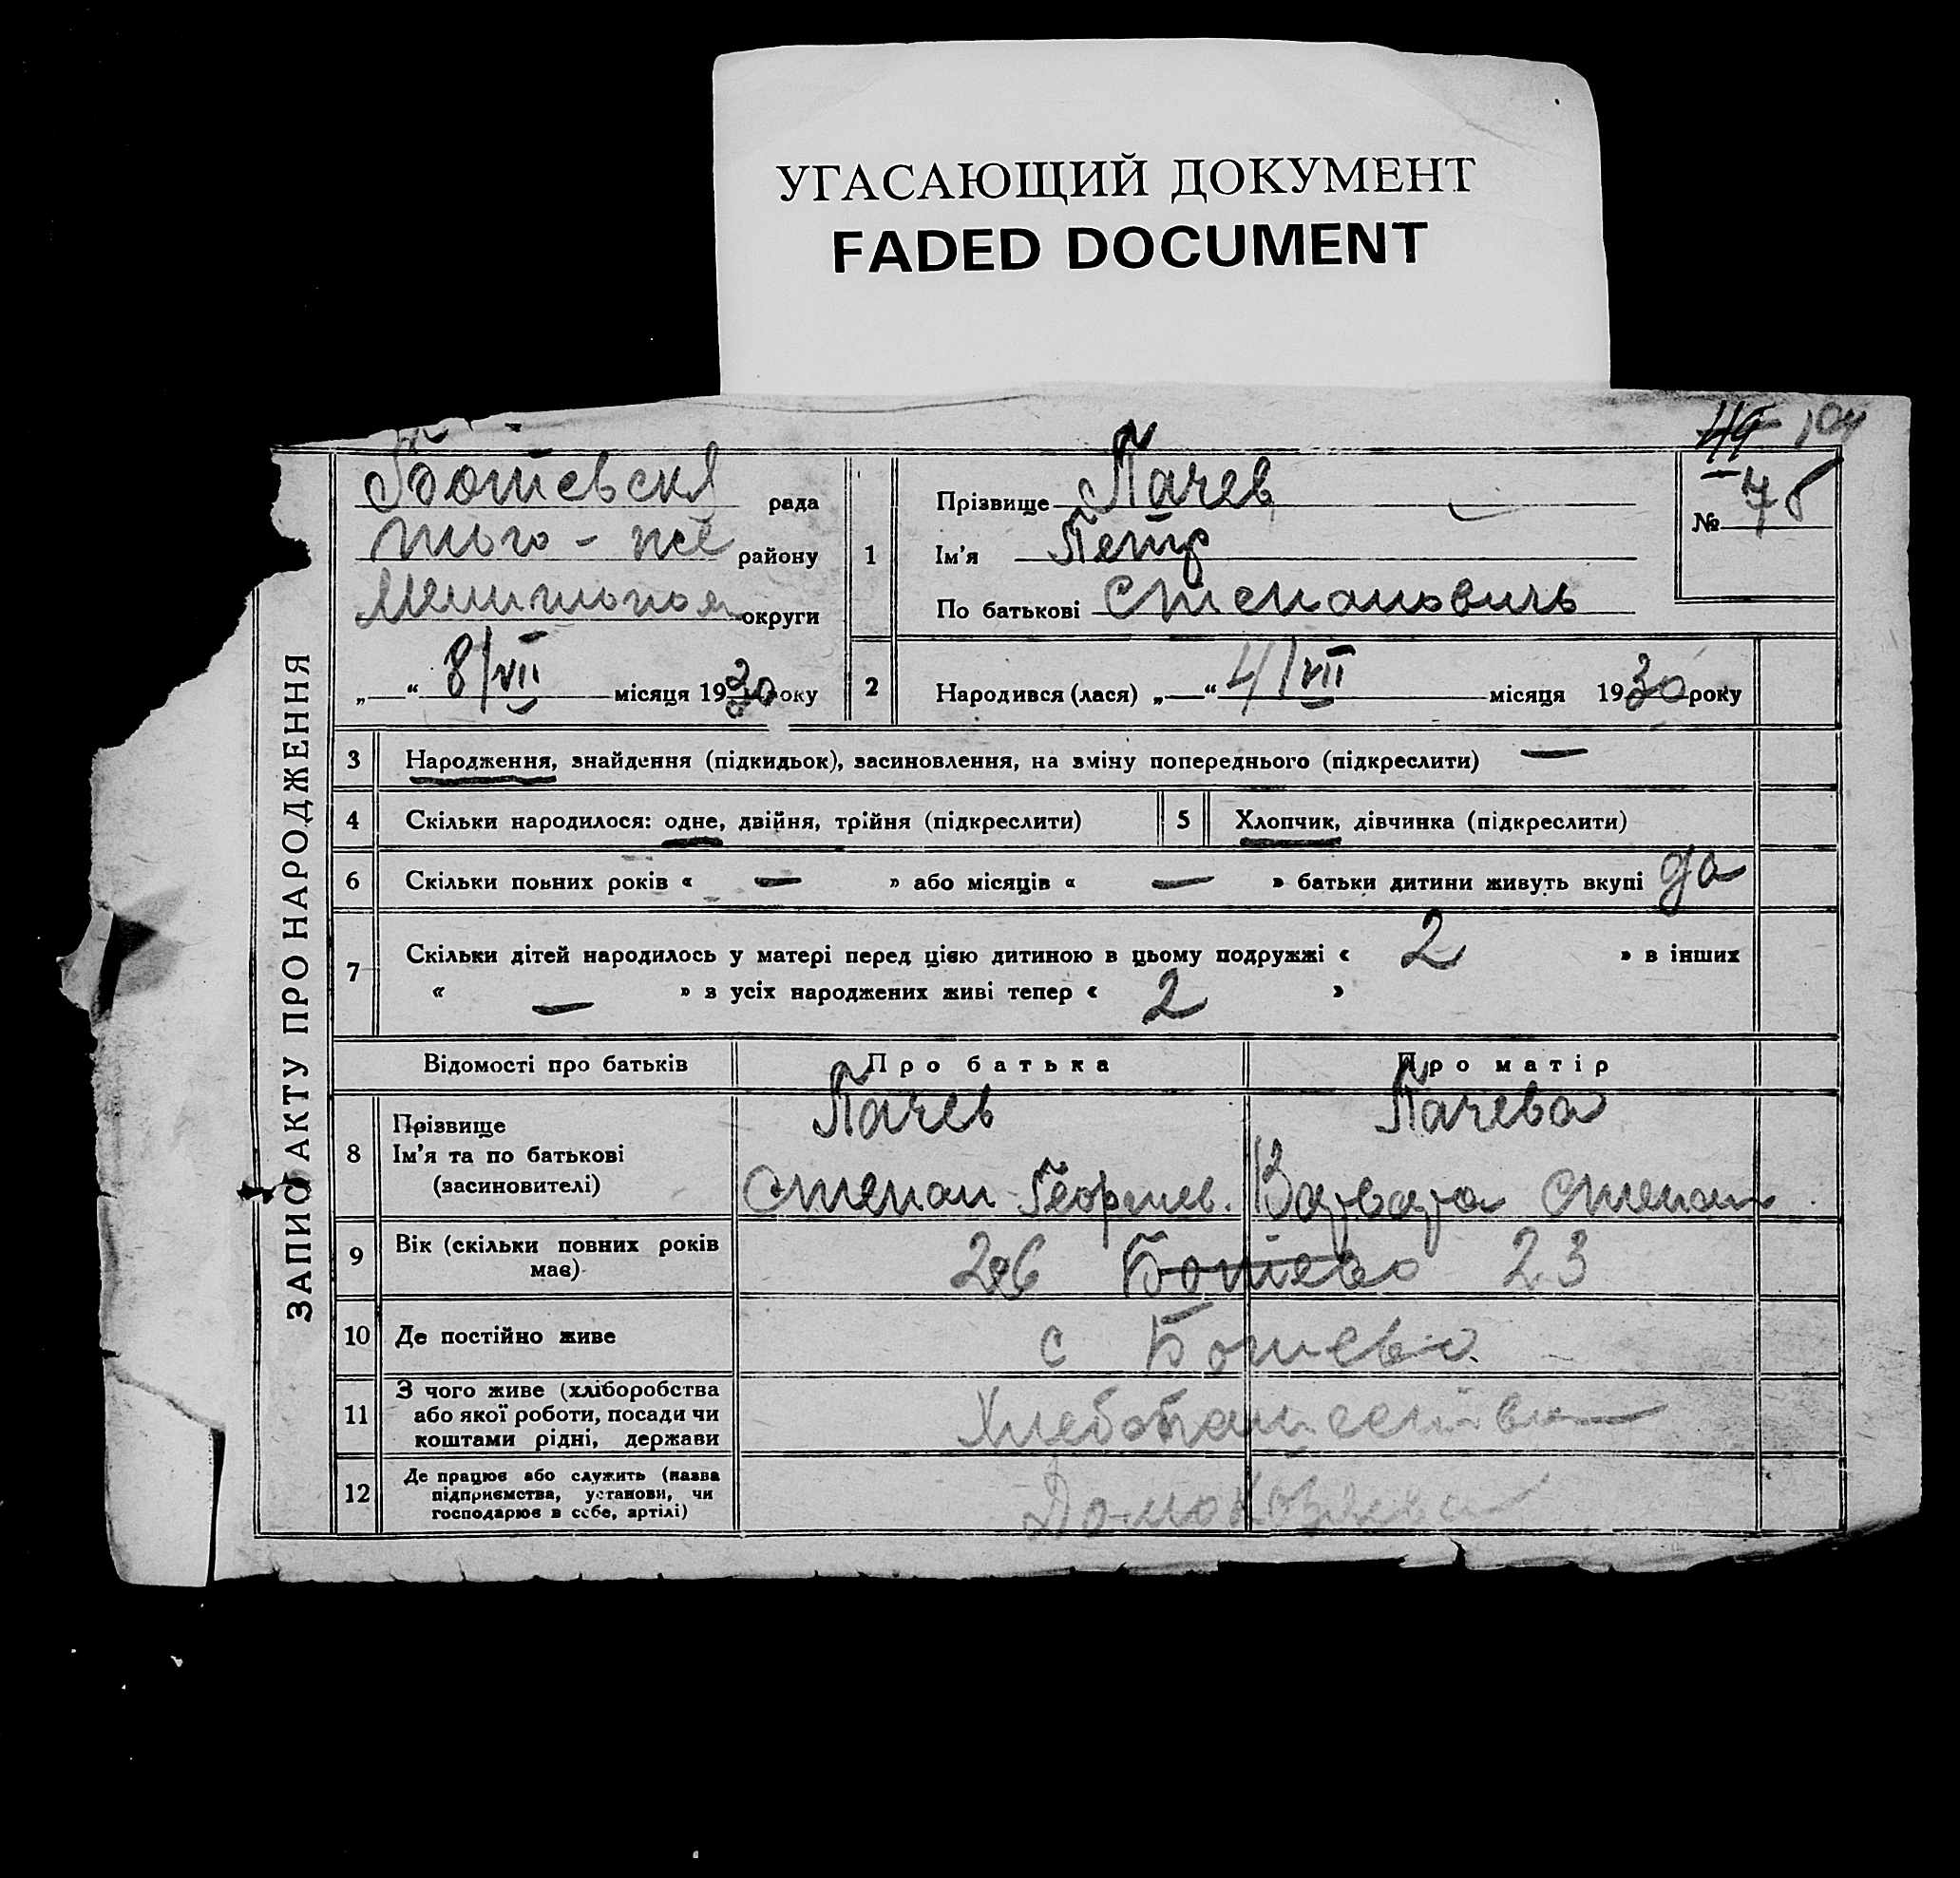 УГАСАЮЩИЙ ДОКУМЕНТ
FADED DOCUMENT
ЗАПИС АКТУ ПРО НАРОДЖЕННЯ
49 104
Ботевска рада
того-же району
округи
„—“ 8/VII місяця 1930 року
1
Прізвище Пачев
Ім'я Петр
По батькові Степанович
№
2
Народився (лася) „—“ 4/VII місяця 1930 року
3 Народження, знайдення (підкидьок), васиновлення, на зміну попереднього (підкреслити) —
4 Скільки народилося: одне, двійня, трійня (підкреслити)
5 Хлопчик, дівчинка (підкреслити)
6 Скільки повних років « — » або місяців « — » батьки дитини живуть вкупі да
7 Скільки дітей народилось у матері перед цією дитиною в цьому подружжі « 2 » в інших
« — » з усіх народжених живі тепер « 2 »
Відомості про батьків Про батька Про матір
8 Прізвище
Ім'я та по батькові
(васиновителі)
Пачев
Степан Георгиев.
Пачева
Варвара Степан
9 Вік (скільки повних років
має)
26 Ботево 23
10 Де постійно живе с Ботево
11 З чого живе (хліборобства
або якої роботи, посади чи
коштами рідні, держави
12 Де працює або служить (назва
підприємства, установи, чи
господарює в себе, артілі)